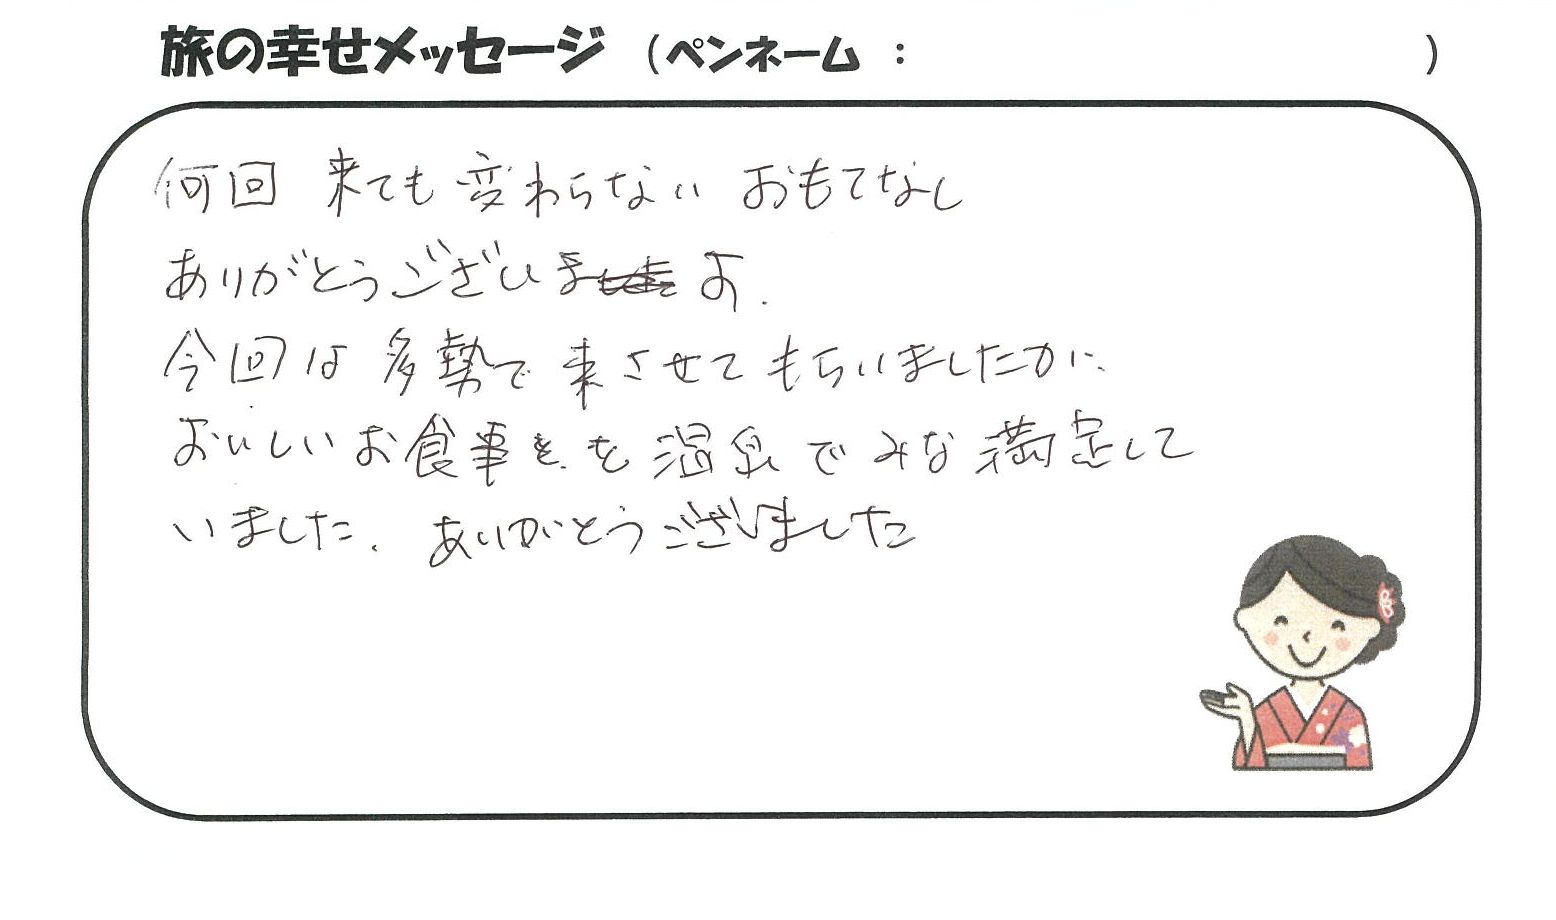 旅の幸せメッセージ (ペンネーム : )
何回 来ても 変わらない おもてなし
ありがとうございます.
今回は 多勢で 来させて もらいましたが、
おいしい お食事を を 温泉で みな 満足して
いました. ありがとうございました